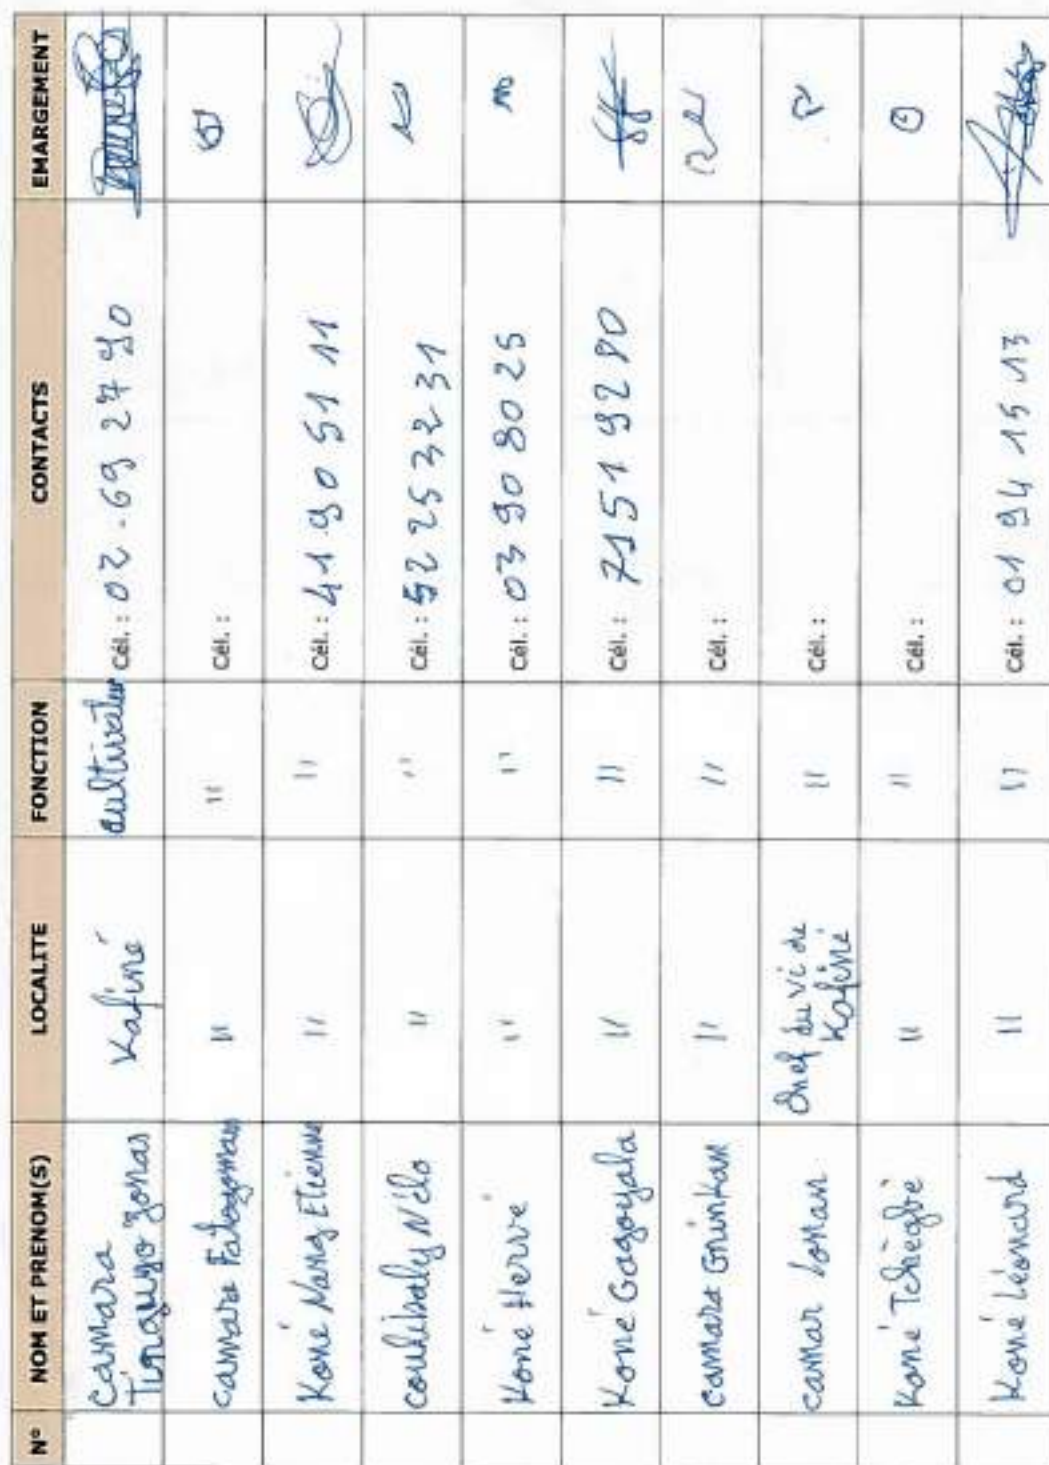 N° NOM ET PRENOM(S) LOCALITE FONCTION CONTACTS EMARGEMENT
Camara
Kafiné cultivateur Cél. : 02 . 69 27 90
Camara " " Cél. :
Koné Nang Etienne " " Cél. : 41 90 51 11
Coulibaly Nélo " " Cél. : 52 25 32 31
Koné Hervé " " Cél. : 03 90 80 25
Koné Gagoyala " " Cél. : 71 51 92 80
Camara " " Cél. :
Camar Lonan Chef du vi de
Kafiné " Cél. :
Koné " " Cél. :
Koné Léonard " " Cél. : 01 94 15 13